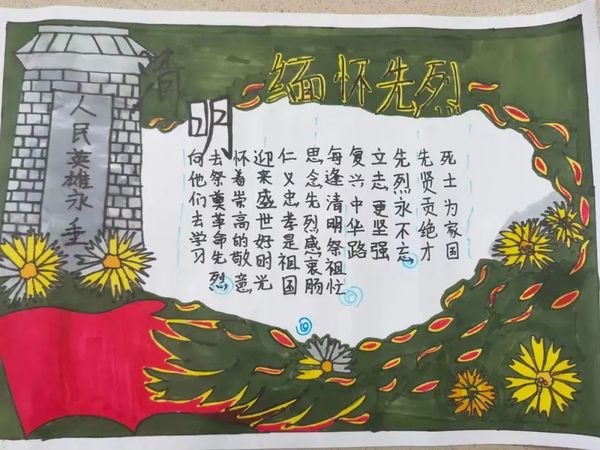 清明
缅怀先烈
人民英雄永垂
死士为家国
先贤贡绝才
先烈永不忘
立志更坚强
复兴中华路
每逢清明祭祖忙
思念先烈感衷肠
仁义忠孝是祖国
迎来盛世好时光
怀着崇高的敬意
去祭奠革命先烈
向他们去学习